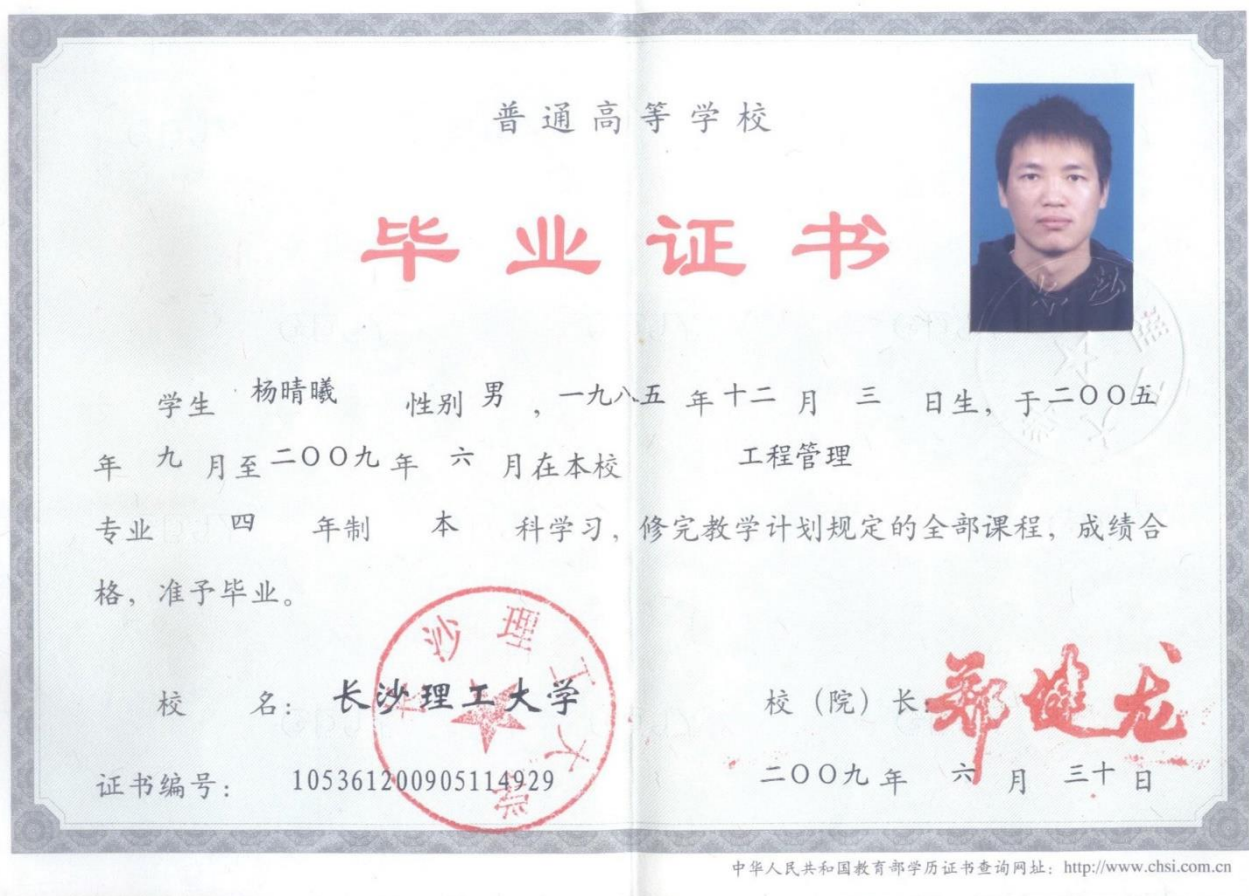 普通高等学校
毕业证书
学生 杨晴曦 性别 男 ，一九八五 年 十二 月 三 日生，于 二〇〇五
年 九 月至 二〇〇九 年 六 月在本校 工程管理
专业 四 年制 本 科学习，修完教学计划规定的全部课程，成绩合
格，准予毕业。
长沙理工大学
校 名： 长沙理工大学
校（院）长： 郑健龙
证书编号： 105361200905114929
二〇〇九 年 六 月 三十 日
中华人民共和国教育部学历证书查询网址：http://www.chsi.com.cn